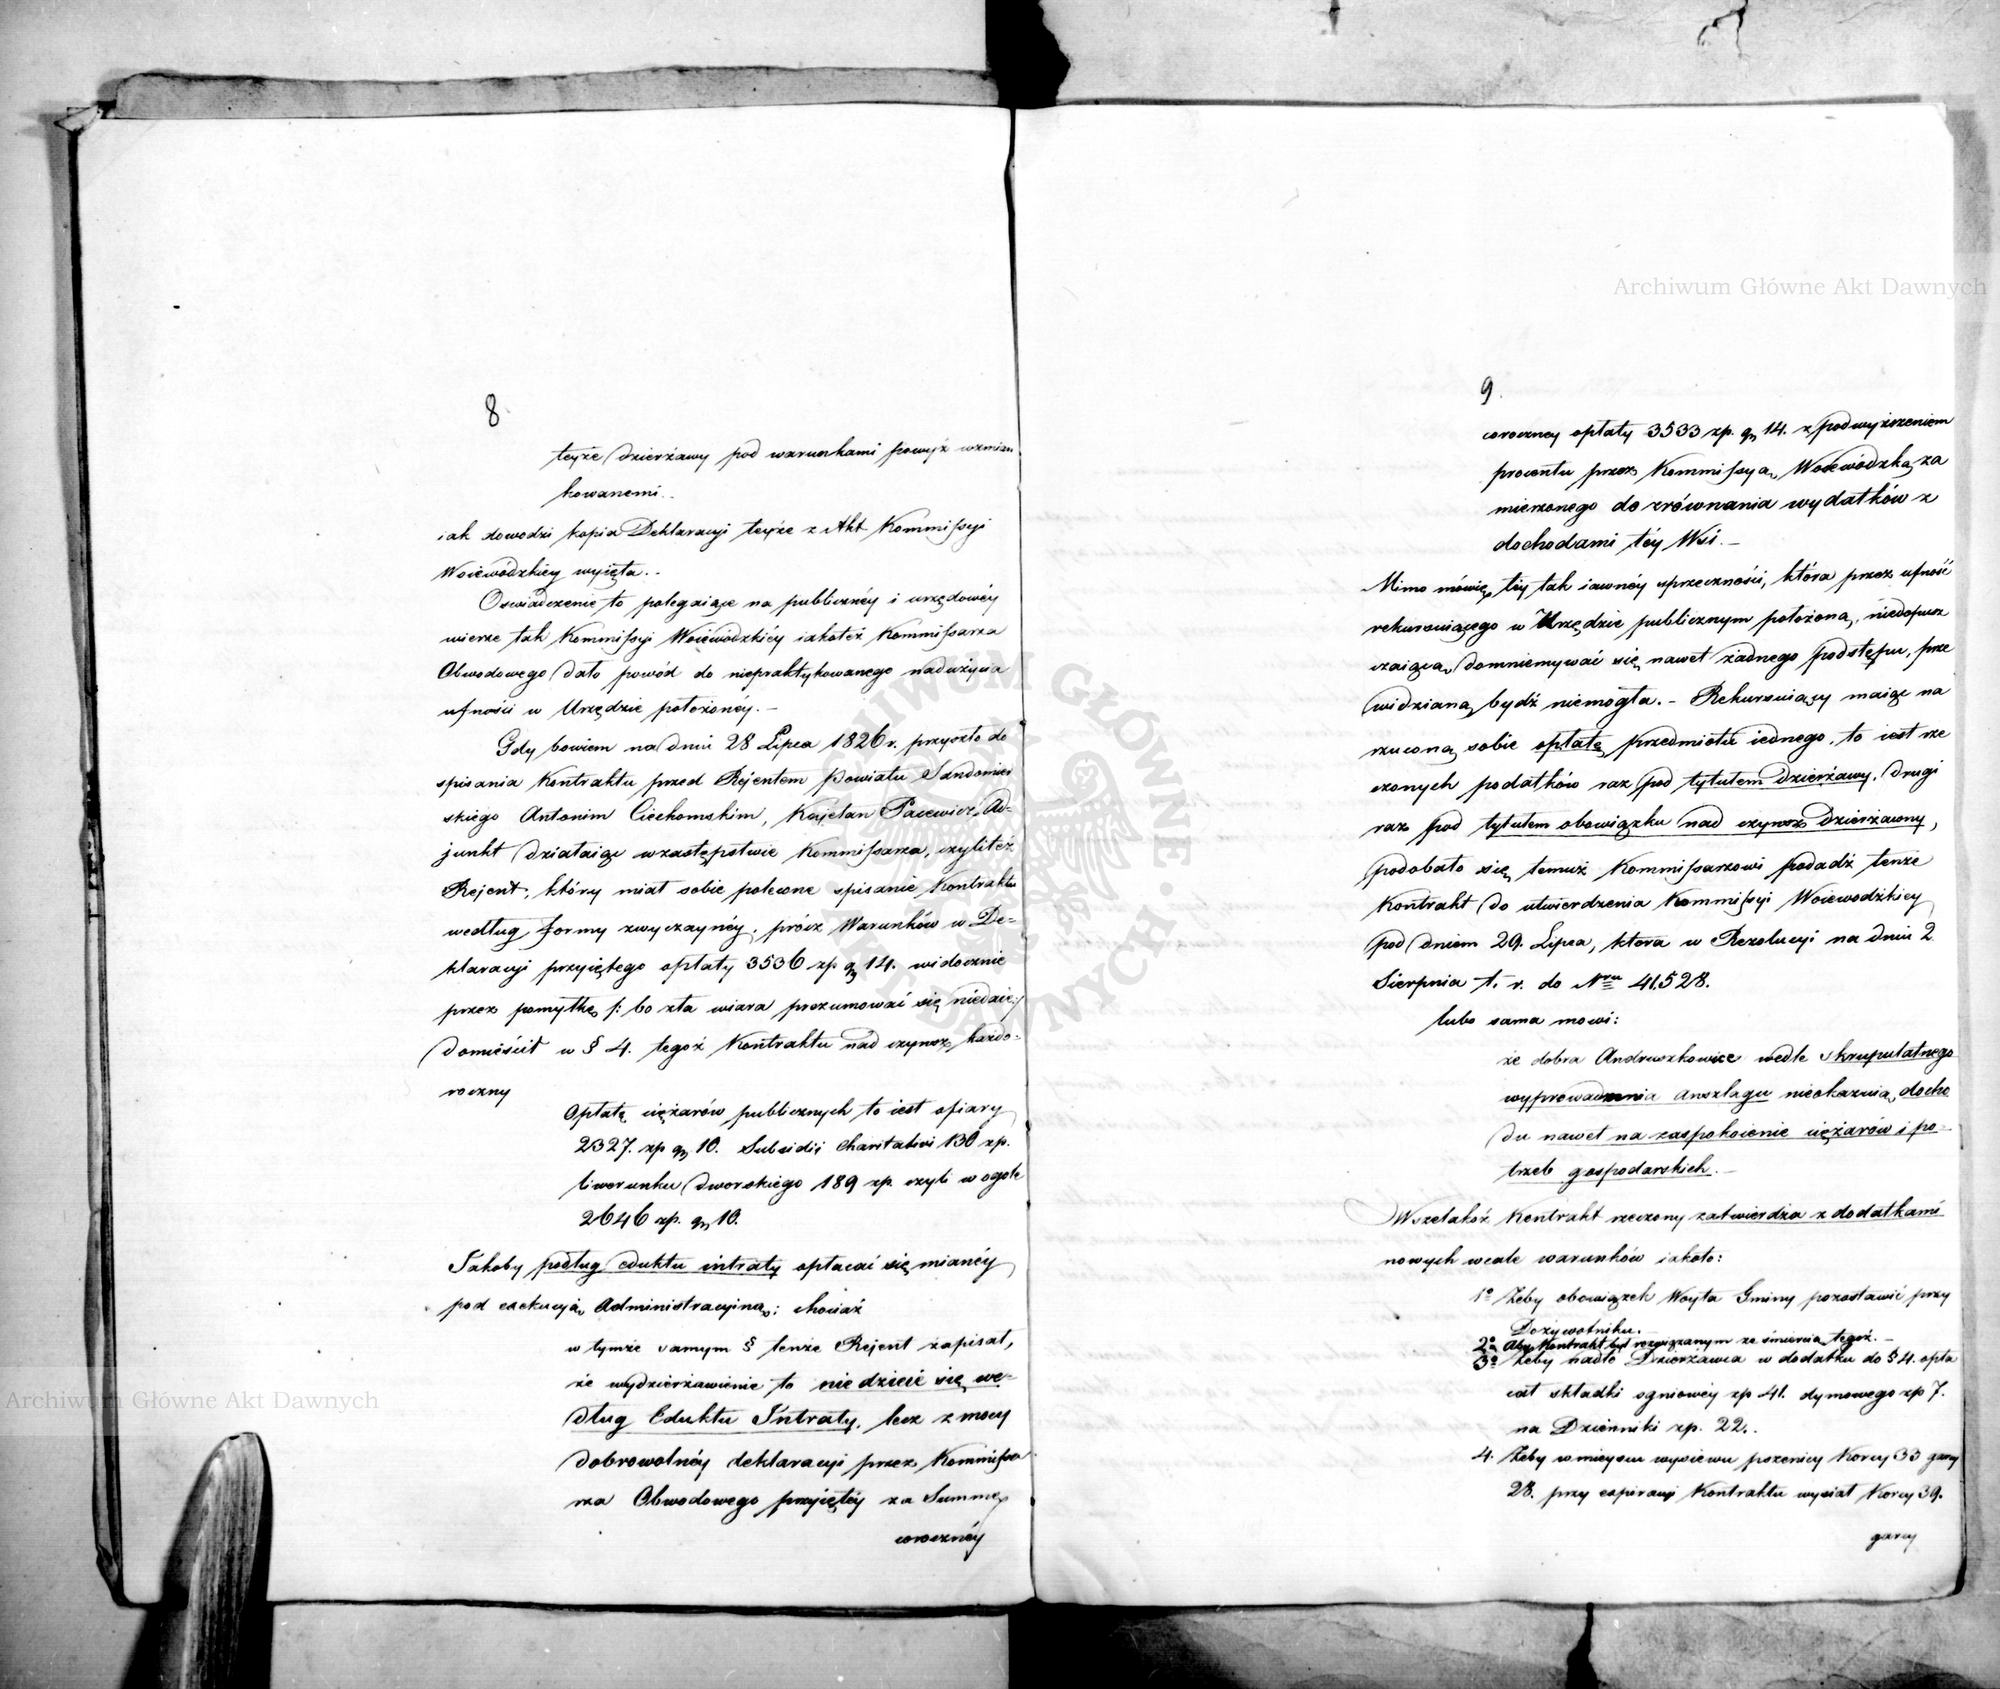 8
teyże dzierżawy pod warunkami powyż wzmian
kowanemi.
iak dowodzi kopia Deklaracyi teyże z Akt Kommissyi
Woiewódzkiey wyięta.
Oswiadczenie to polegaiące na publicznéy i urzędowéy
wierze tak Kommissyi Woiewódzkiéy iakoteż Kommissarza
Obwodowego dało powód do niepraktykowanego nadużycia
ufności w Urzędzie położonéy. —
Gdy bowiem na dniu 28 Lipca 1826 r. przyszło do
spisania Kontraktu przed Rejentem Powiatu Sandomier
skiego Antonim Ciechomskim, Kajetan Pacewicz Ad-
junkt działaiąc w zastępstwie Kommissarza, czyliteż
Rejent, który miał sobie polecone spisanie Kontraktu
według formy zwyczaynéy, prócz Warunków w De-
klaracyi przyiętego opłaty 3536 zp. gr 14. widocznie
przez pomyłkę /: bo zła wiara przumować się niedaie :/
domieścił w § 4. tegoż Kontraktu nad czynsz każdo-
roczny
Opłatę ciężarów publicznych to iest ofiary
2327. zp gr 10. Subsidii Charitativi 130 zp.
liwerunku dworskiego 189 zp. czyli w ogole
2646 zp. gr 10.
Jakoby podług eduktu intraty opłacać się mianéy
pod exekucyą Administracyiną; chociaż
w tymże samym § tenże Rejent zapisał,
że wydzierżawienie to nie dzieie się we-
dług Eduktu Intraty, lecz z mocy
dobrowolnéy deklaracyi przez Kommissa
rza Obwodowego przyiętéy za Summę
corocznéy
9.
coroczney opłaty 3533 zp. gr 14. z podwyższeniem
procentu przez Kommissyą Woiewódzką za
mierzonego do zrównania wydatków z
dochodami téy Wsi. —
Mimo mówię téy tak iawnéy sprzeczności, która przez ufność
rekursuiącego w Urzędzie publicznym położoną, niedopusz
czaiącą domniemywać się nawet żadnego podstępu, prze
widzianą bydź niemogła. — Rekursuiący maiąc na
rzuconą sobie opłatę przedmiotu iednego, to iest rze
czonych podatków raz pod tytułem dzierżawy, drugi
raz pod tytułem obowiązku nad czynsz dzierżawny,
podobało się temuż Kommissarzowi podadź tenże
Kontrakt do utwierdzenia Kommissyi Woiewodzkiey
pod dniem 29. Lipca, ktora w Rezolucyi na dniu 2
Sierpnia t. r. do Nru 41.528.
lubo sama mowi:
że dobra Andruszkowice wedle skrupulatnego
wyprowadzenia anszlagu nieokazuią docho
du nawet na zaspokoienie ciężarów i po-
trzeb gospodarskich. —
Wszelakoż Kontrakt rzeczony zatwierdza z dodatkami
nowych wcale warunków iakoto:
1o Żeby obowiązek Woyta Gminy pozostawić przy
Dożywotniku.
2o Aby Kontrakt był rozwiązanym ze śmiercią tegoż. —
3o Żeby nadto Dzierżawca w dodatku do § 4. opła
cał składki ogniowéy zp 41. dymowego zp 7.
na Dzienniki zp. 22.
4. Żeby w mieyscu wysiewu pszenicy Korcy 33 garcy
28. przy expiracyi Kontraktu wysiał Korcy 39.
garcy
Archiwum Główne Akt Dawnych
Archiwum Główne Akt Dawnych
ARCHIWUM GŁÓWNE AKT DAWNYCH